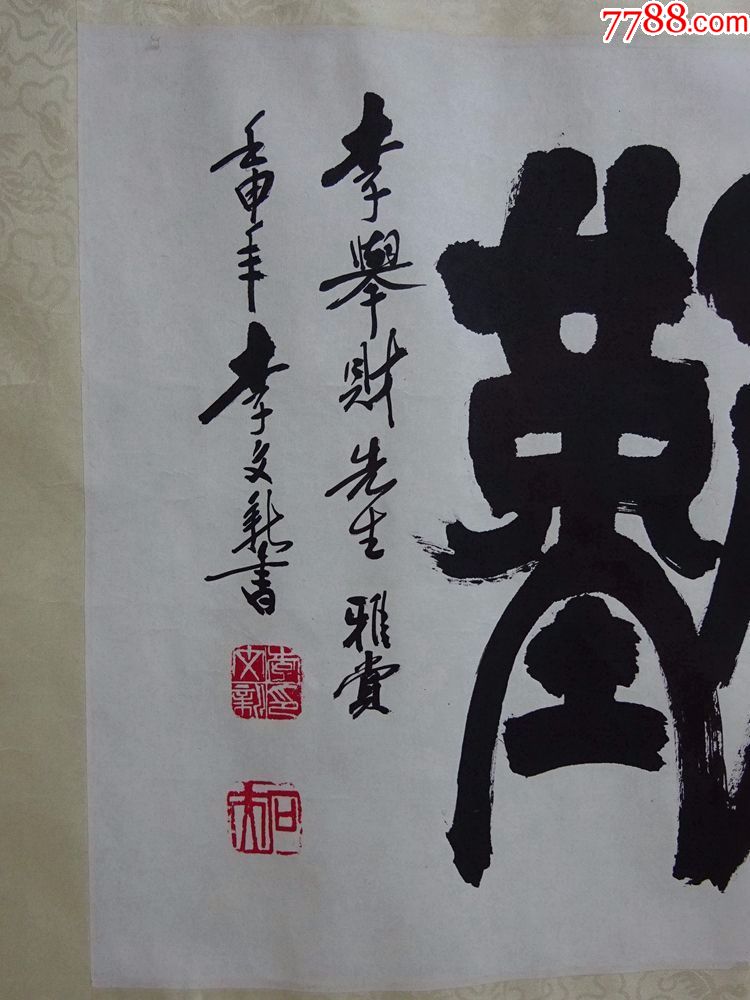 7788.com
李舉財先生 雅賞
壬申年 李文新書
李印文新